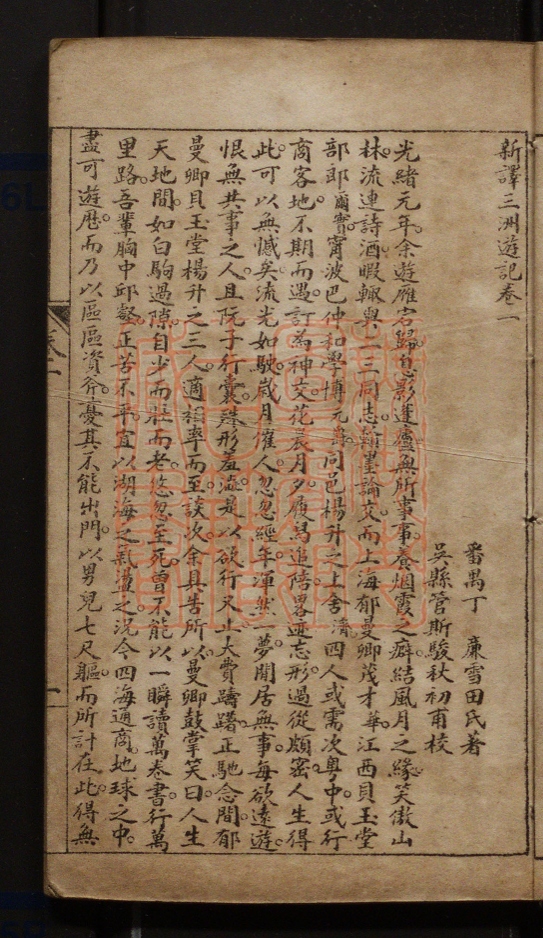 新譯三洲遊記卷一
番禺丁　廉雪田氏著
吳縣管斯駿秋初甫校
光緒元年余遊雁宕歸息影蓬廬無所事事養烟霞之癖結風月之緣笑傲山
林流連詩酒暇輒與二三同志翰墨論交而上海郁曼卿茂才華江西貝玉堂
部郎爾賓甯波巴仲和學博元同邑楊升之上舍清四人或需次粵中或行
商客地不期而遇訂為神交花晨月夕履舄追陪畧迹志形過從頗密人生得
此可以無憾矣流光如駛歲月催人忽忽經年渾然一夢閒居無事每欲遠遊
恨無共事之人且阮子行囊殊形羞澁是以欲行又止大費躊躇正馳念間郁
曼卿貝玉堂楊升之三人適相率而至談次余具告所以曼卿鼓掌笑曰人生
天地間如白駒過隙自少而壯而老悠忽至死曾不能以一瞬讀萬卷書行萬
里路吾輩胸中邱壑正苦不平宜以湖海之氣盪之況今四海通商地球之中
盡可遊歷而乃以區區資斧憂其不能出門以男兒七尺軀而所計在此得無
卷一
一